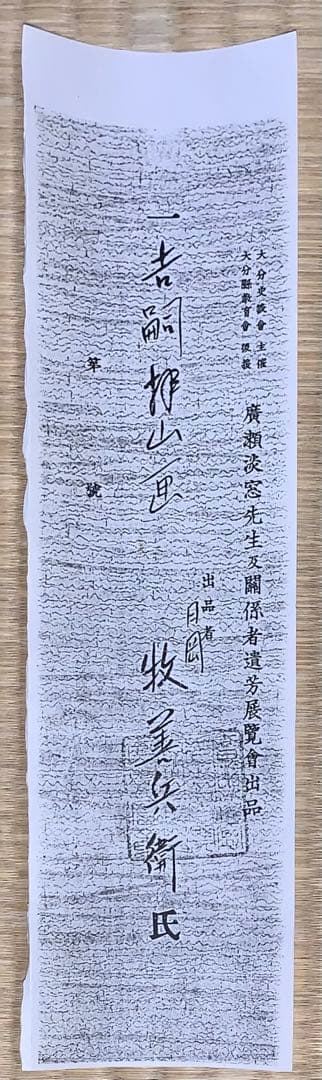 大分史談會 主催
大分縣教育會 後援
廣瀬淡窓先生及關係者遺芳展覽會出品
一 吉嗣拝山画
第 號
出品者
日岡
牧善兵衛氏